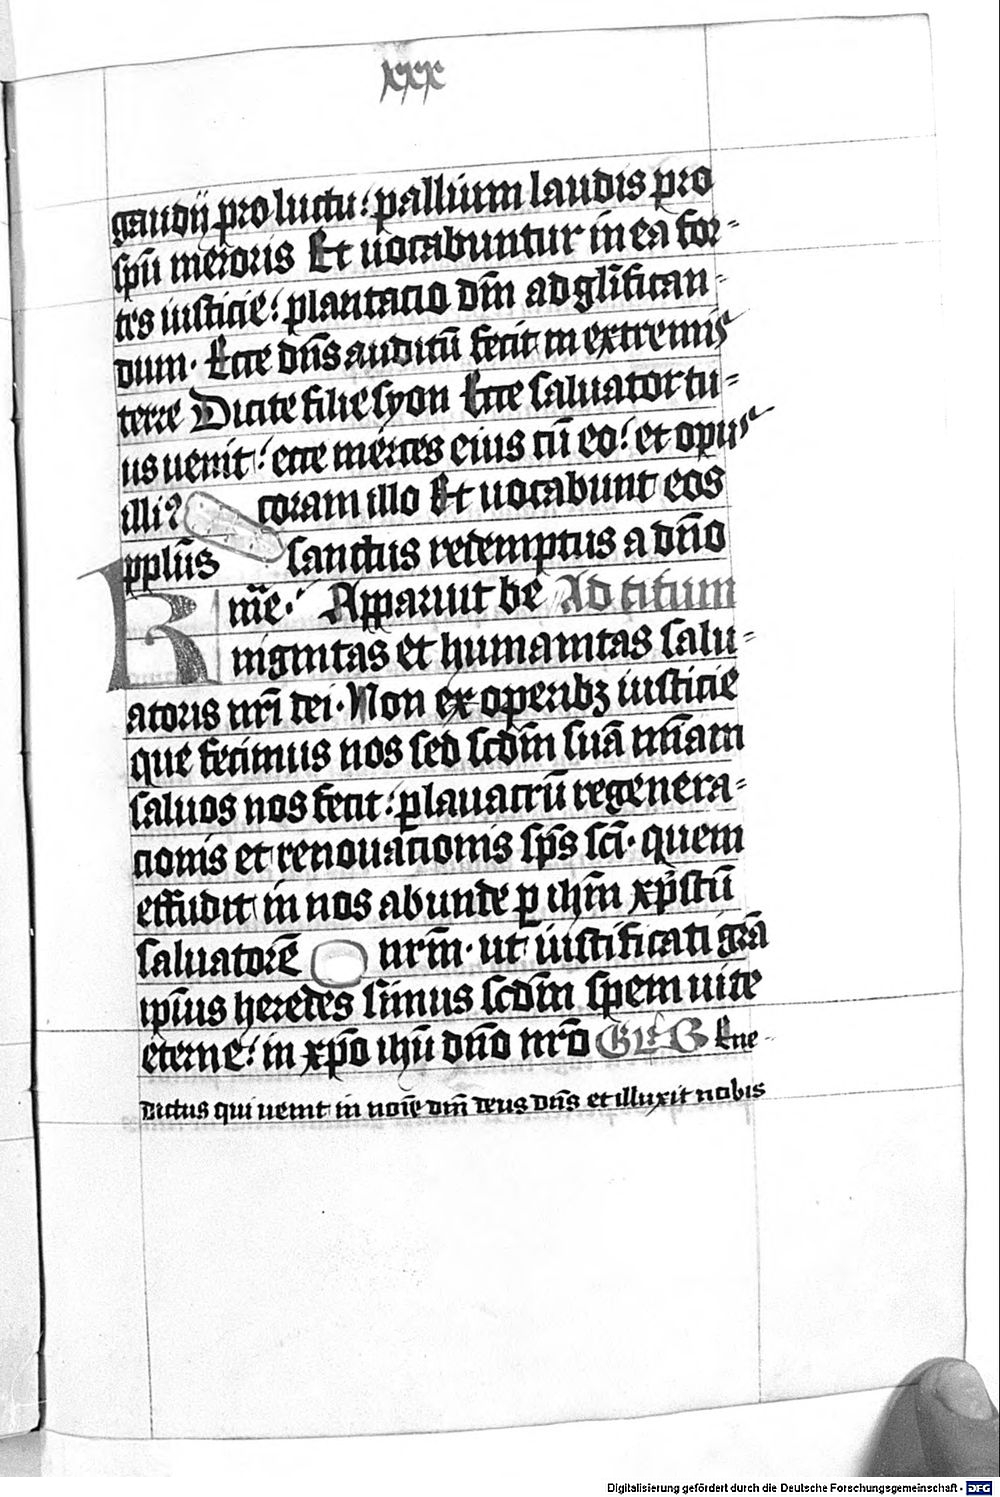 xxx
gaudij pro luctu: pallium laudis pro
spū meroris Et uocabuntur in ea for-
tes iusticie: plantacio dm̄ ad gl̄ifican-
dum. Ecce dn̄s auditū fecit in extremis
terre Dicite filie syon Ecce saluator tu-
us uenit: ecce merces eius cū eo: et opus
illiꝰ coram illo Et uocabunt eos
ppl̄us sanctus redemptus a dn̄o
Kme: Apparuit be Ad titum
nignitas et humanitas salu-
atoris nr̄i dei. Non ex operibꝫ iusticie
que fecimus nos sed scd̄m suā mīam
saluos nos fecit: p lauacrū regenera-
cionis et renouacionis sp̄s sc̄i. quem
effudit in nos abunde ꝑ ihm̄ xp̄istū
saluatorē nr̄m. ut iustificati gr̄a
ip̄ius heredes simus scd̄m spem uite
eterne: in xp̄o ihū dn̄o nr̄o Gl̄ G Bene-
dictus qui uenit in noīe dm̄ deus dn̄s et illuxit nobis
Digitalisierung gefördert durch die Deutsche Forschungsgemeinschaft - DFG